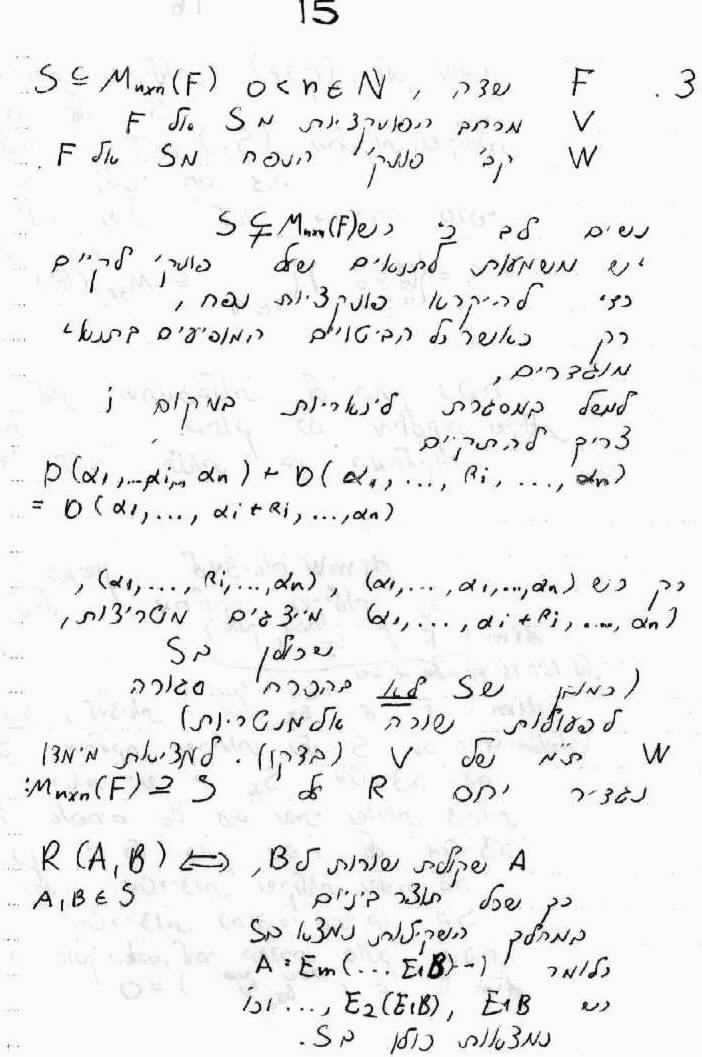 15
3. F שדה, S ⊆ Mnxn(F) 0<n∈N
V מרחב הפונקציות מ S אל F
W קב' פונק' הנפח מ S אל F.
נשים לב כי כש S⊊Mnxn(F)
יש משמעות לתנאים שעל פונק' לקיים
כדי להיקרא פונקציות נפח,
רק כאשר כל הביטויים המופיעים בתנאי
מוגדרים,
למשל במסגרת לינאריות במקום i
צריך להתקיים
D(α1,...,αi,..., αn) + D(α1,...,βi,...,αn)
= D(α1,...,αi+βi,...,αn)
רק כש (α1,...,αi,...,αn), (α1,...,βi,...,αn),
(α1,...,αi+βi,...,αn) מייצגים מטריצות,
שכולן ב S
(כמובן ש S לא בהכרח סגורה
לפעולות שורה אלמנטריות)
W ת"מ של V (בדקו). למציאת מימדו
נגדיר יחס R על S ⊆ Mnxn(F):
R(A,B) ⟺ A שקולת שורות ל B,
A,B∈S כך שכל תוצר ביניים
במהלך השקילות נמצא ב S
כלומר A=Em(...E1B)...)
כש E1B, E2(E1B),... וכו'
נמצאות כולן ב S.